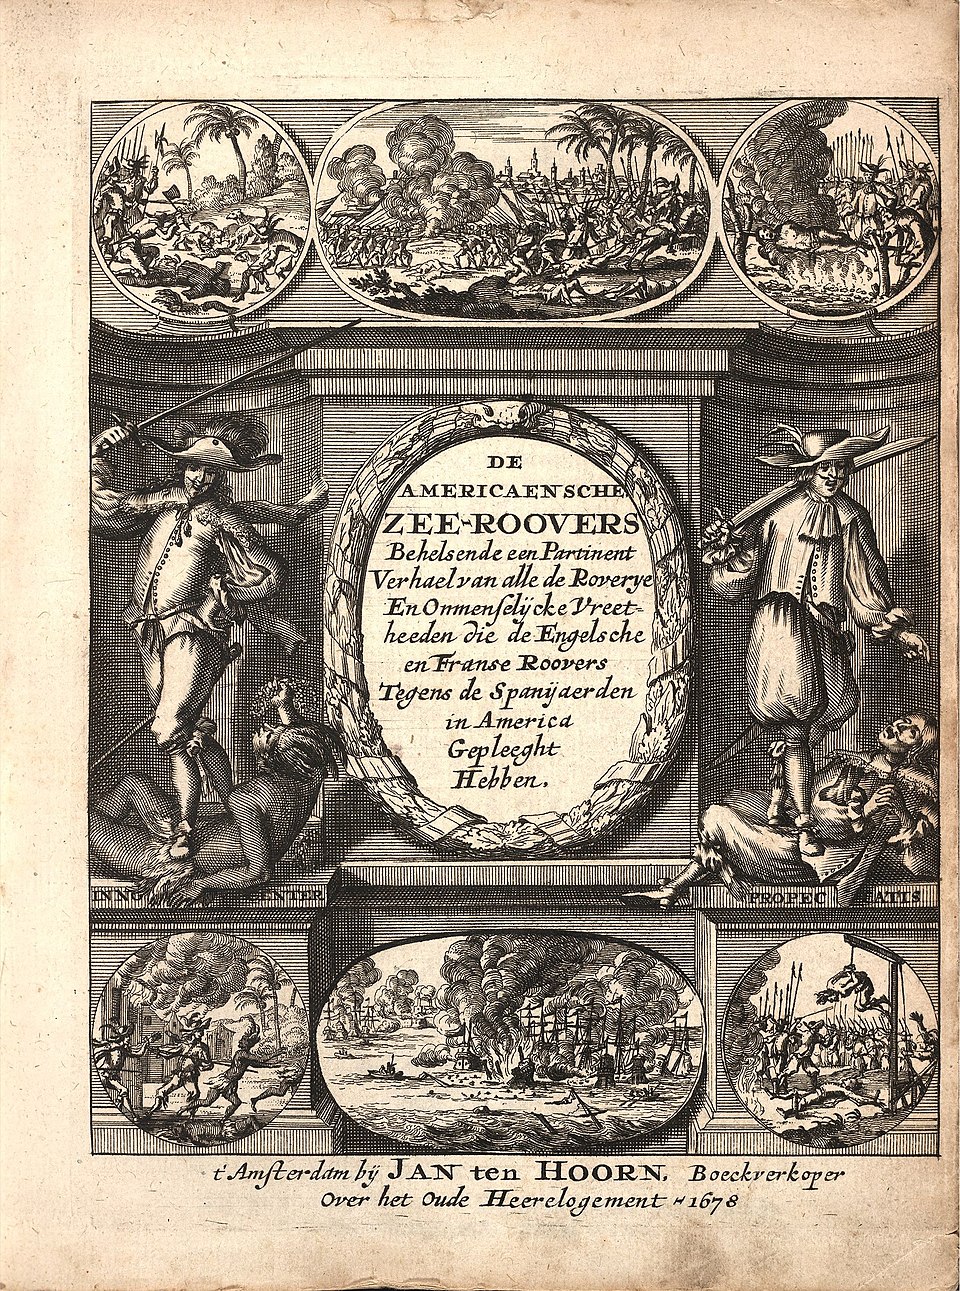 DE
AMERICAENSCHE
ZEE-ROOVERS
Behelsende een Partinent
Verhael van alle de Roverye
En Onmenselijcke Vreet-
heeden die de Engelsche
en Franse Roovers
Tegens de Spanijaerden
in America
Gepleeght
Hebben.
INNO ENTER
PROPEC ATIS
t'Amsterdam bij JAN ten HOORN, Boeckverkoper
Over het Oude Heerelogement - 1678